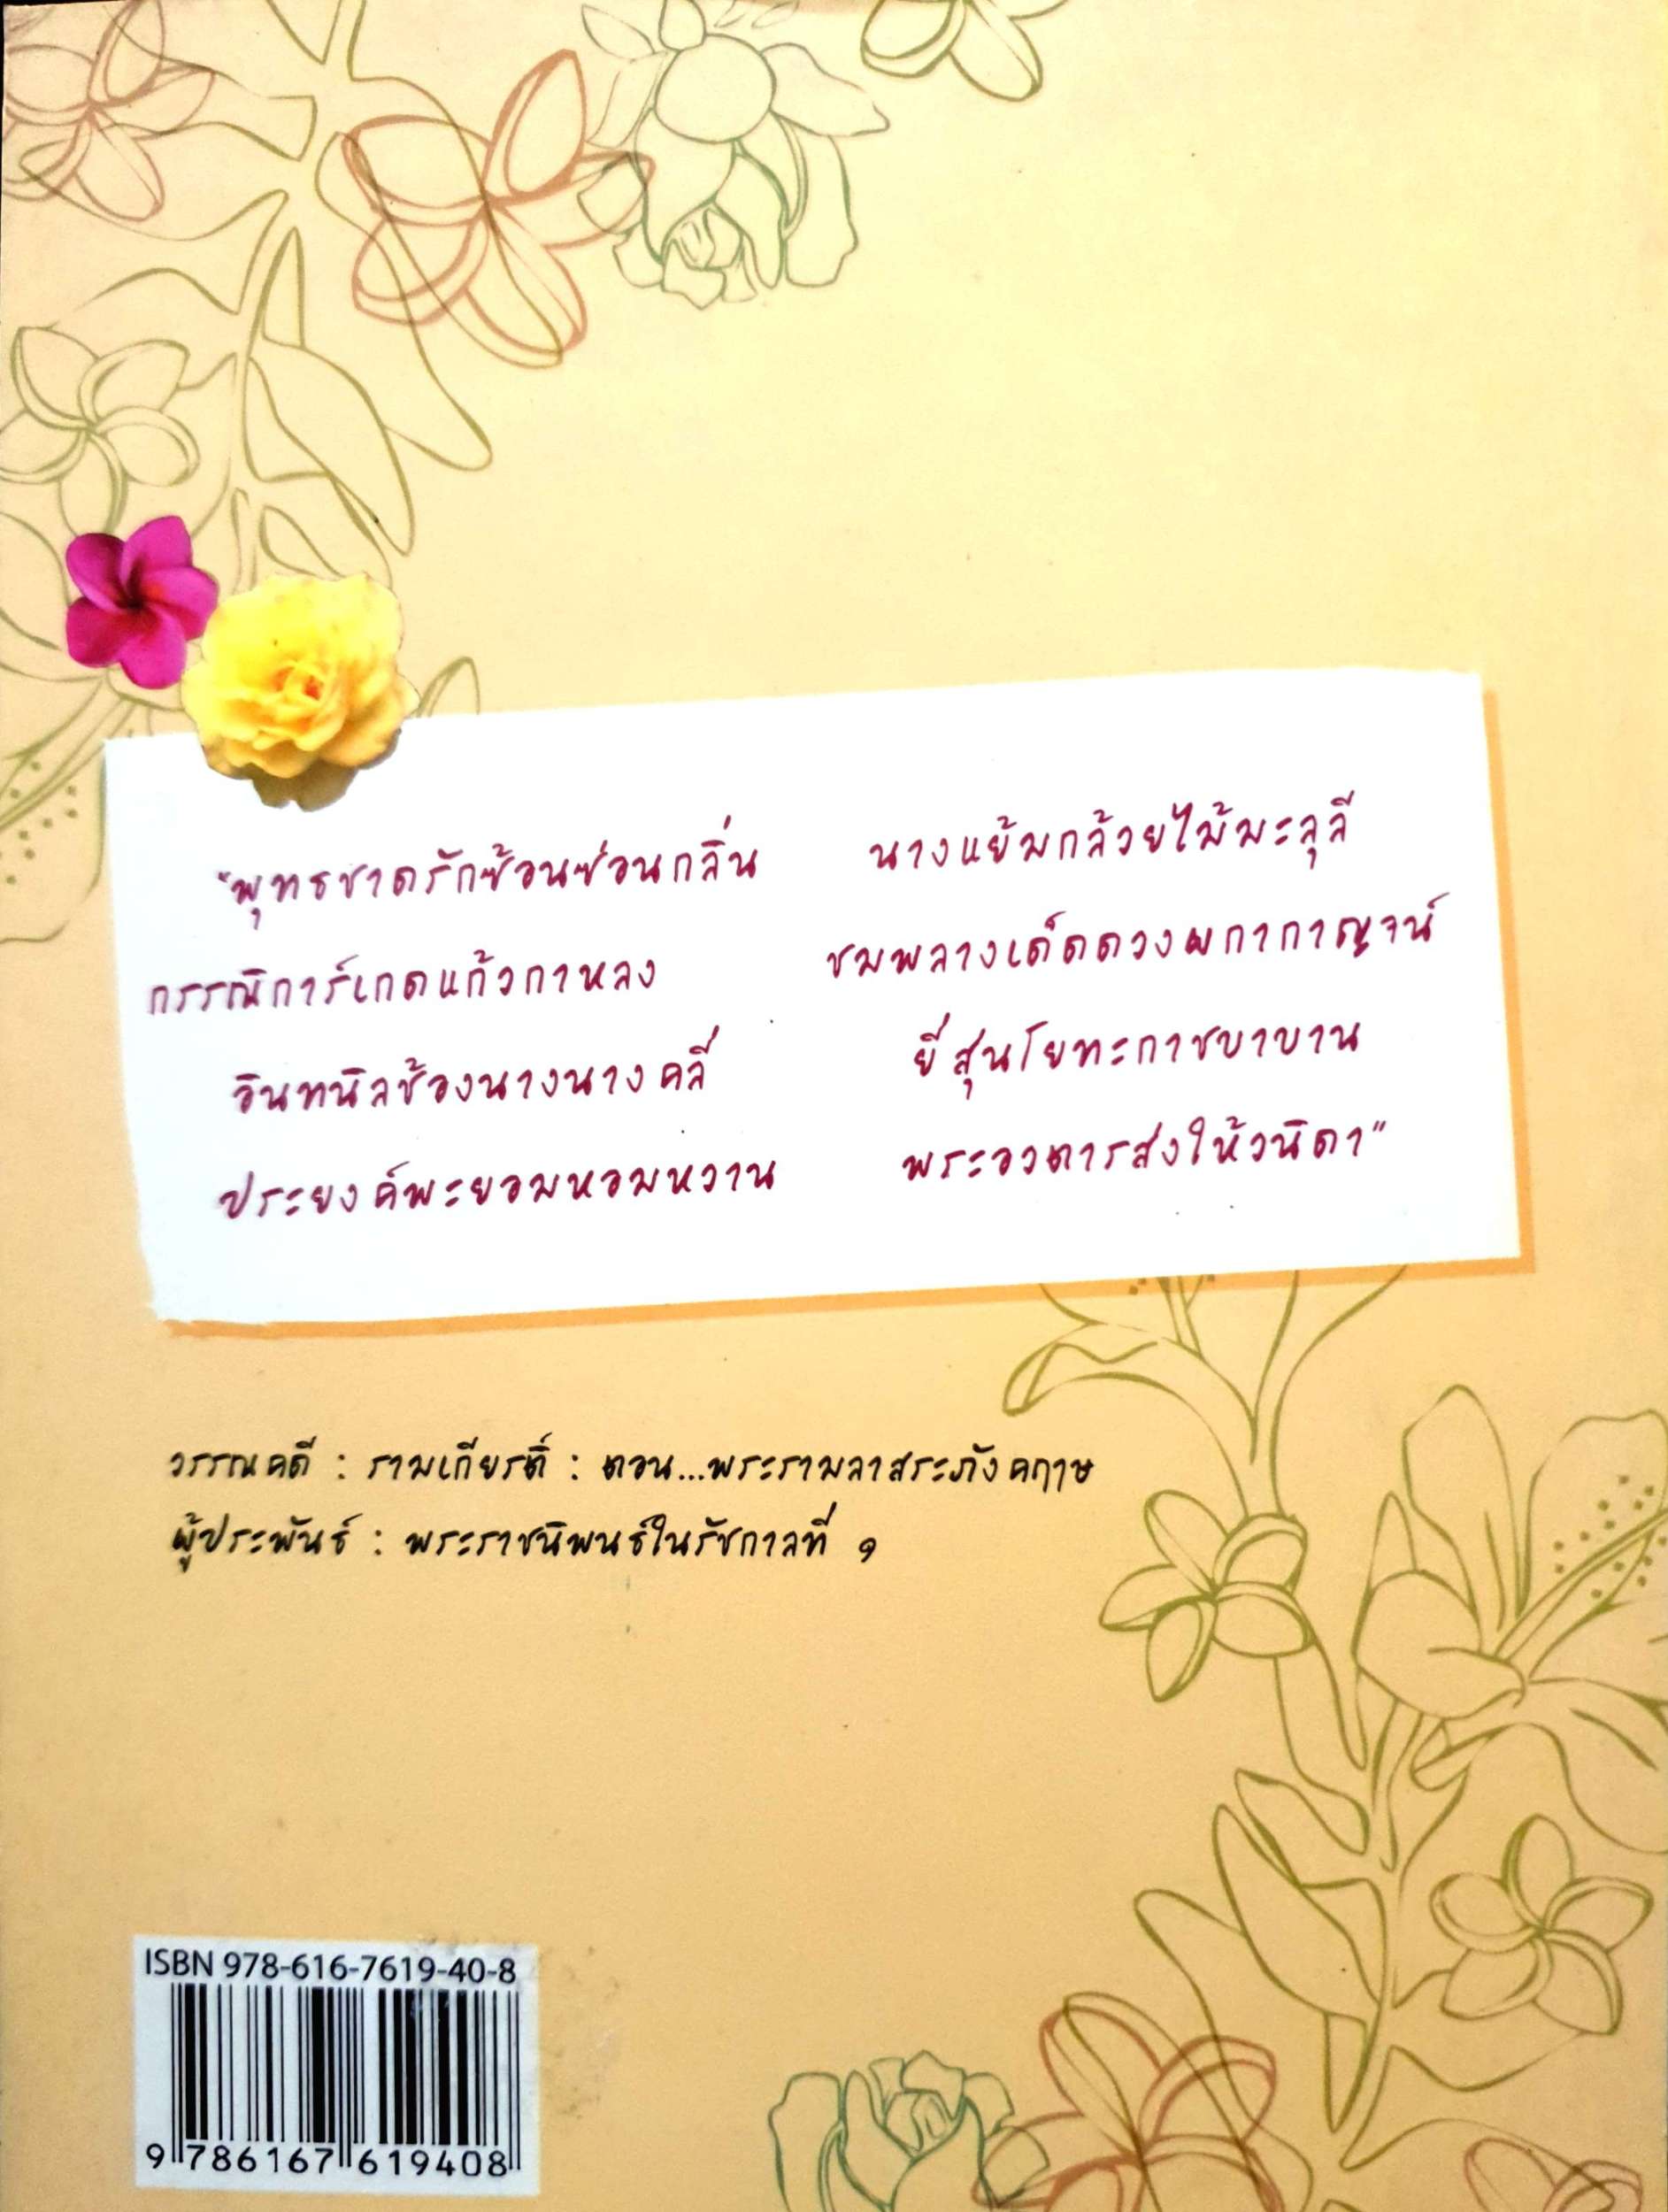 "พุทธชาดรักซ้อนซ่อนกลิ่น นางแย้มกล้วยไม้มะลุลี
กรรณิการ์เกดแก้วกาหลง ชมพลางเด็ดดวงผกากาญจน์
อินทนิลช้องนางนางคลี่ ยี่สุ่นโยทะกาชบาบาน
ประยงค์พะยอมหอมหวาน พระอวตารส่งให้วนิดา"
วรรณคดี : รามเกียรติ์ : ตอน...พระรามลาสระภังคฤๅษ
ผู้ประพันธ์ : พระราชนิพนธ์ในรัชกาลที่ ๑
ISBN 978-616-7619-40-8
9 786167 619408